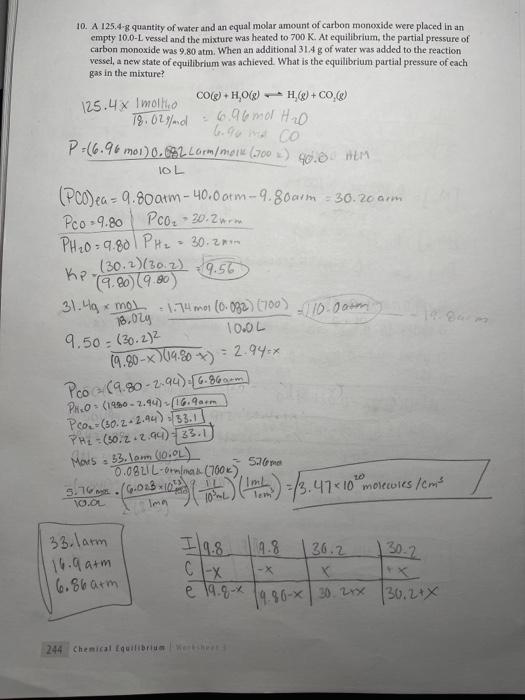 10. A 125.4-g quantity of water and an equal molar amount of carbon monoxide were placed in an
empty 10.0-L vessel and the mixture was heated to 700 K. At equilibrium, the partial pressure of
carbon monoxide was 9.80 atm. When an additional 31.4 g of water was added to the reaction
vessel, a new state of equilibrium was achieved. What is the equilibrium partial pressure of each
gas in the mixture?
CO(g) + H₂O(g) ⇌ H₂(g) + CO₂(g)
125.4 x 1mol H₂O
18.02g/mol = 6.96 mol H₂O
6.96 mol CO
P = (6.96 mol) 0.082 L atm/molK (700 K) 40.0 ATM
10L
(PCO)eq = 9.80atm - 40.0atm - 9.80atm = 30.20 atm
PCO = 9.80 PCO₂ = 30.2atm
PH₂O = 9.80 PH₂ = 30.2atm
KP = (30.2)(30.2) = 9.50
(9.80)(9.80)
31.4g x mol = 1.74 mol (0.082)(700) = 10.0atm
18.02g 10.0L
9.50 = (30.2)²
(9.80-x)(19.80-x) = 2.94=x
PCO = (9.80-2.94) = 6.86atm
PH₂O = (19.80-2.94) = 16.9atm
PCO₂ = (30.2+2.94) = 33.1
PH₂ = (30.2+2.94) = 33.1
= 33.1atm (10.0L) = 5.76mol
0.0821L-atm/molK (700K)
5.76 mol (6.023x10²³) (1L) (1mL) = 3.47x10²⁰ molecules/cm³
10.0L 1mol 10³mL 1cm³
33.1atm
16.9atm
6.86atm
I 9.8 19.8 30.2 30.2
C -x -x x +x
e 9.8-x 19.80-x 30.2+x 30.2+x
244 Chemical Equilibrium | Worksheet